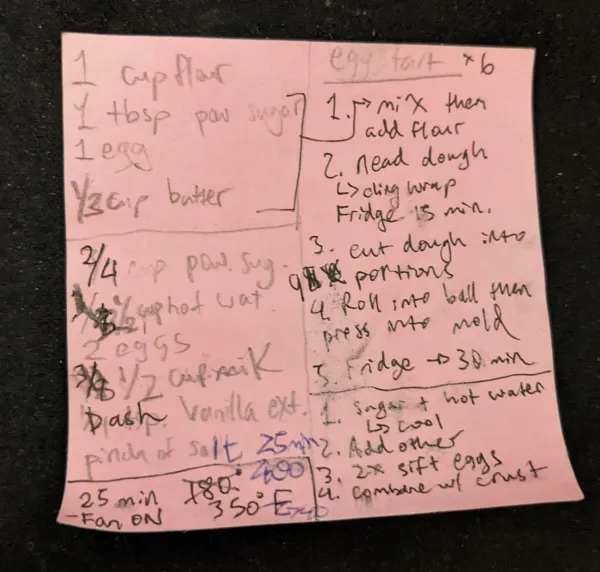 1 cup flour
1 tbsp pow sugar
1 egg
1/3 cup butter
2/4 cup pow. sug.
1/2 cup hot wat.
2 eggs
3/8 1/2 cup milk
Dash Vanilla ext.
pinch of salt
25 min
400
25 min 180°
-Fan ON 350°F
egg tart x6
1. → mix then
add flour
2. Nead dough
↳ cling wrap
Fridge 15 min.
3. cut dough into
9 portions
4. Roll into ball then
press into mold
5. Fridge → 30 min
1. sugar + hot water
↳ cool
2. Add other
3. 2x sift eggs
4. combine w/ crust